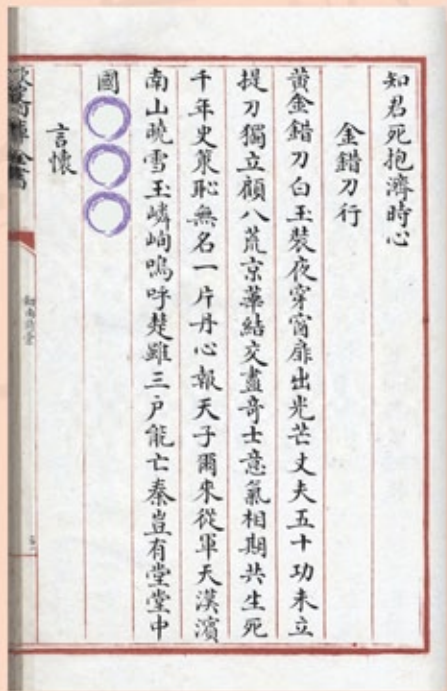 知君死抱濟時心
金錯刀行
黃金錯刀白玉裝夜穿窗扉出光芒丈夫五十功未立
提刀獨立顧八荒京華結交盡奇士意氣相期共生死
千年史策恥無名一片丹心報天子爾來從軍天漢濱
南山曉雪玉嶙峋嗚呼楚雖三户能亡秦豈有堂堂中
國
言懷
欽定四庫全書
劍南詩藁